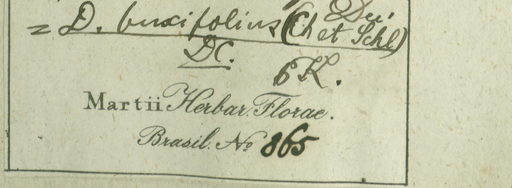 = D. buxifolius (Ch et Schl)
DC.
6K.
Martii Herbar. Florae.
Brasil. No 865